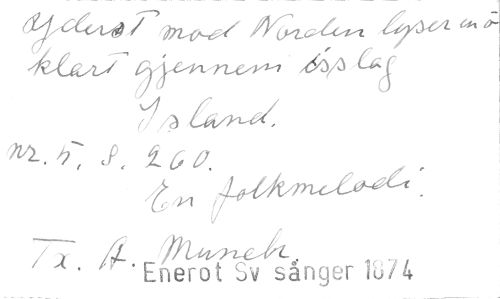 Yderst mod Norden lyser en ö
klart gjennem isslag
Island.
nr. 5, s. 260.
En folkmelodi.
Tx. A. Munch.
Enerot Sv sånger 1874